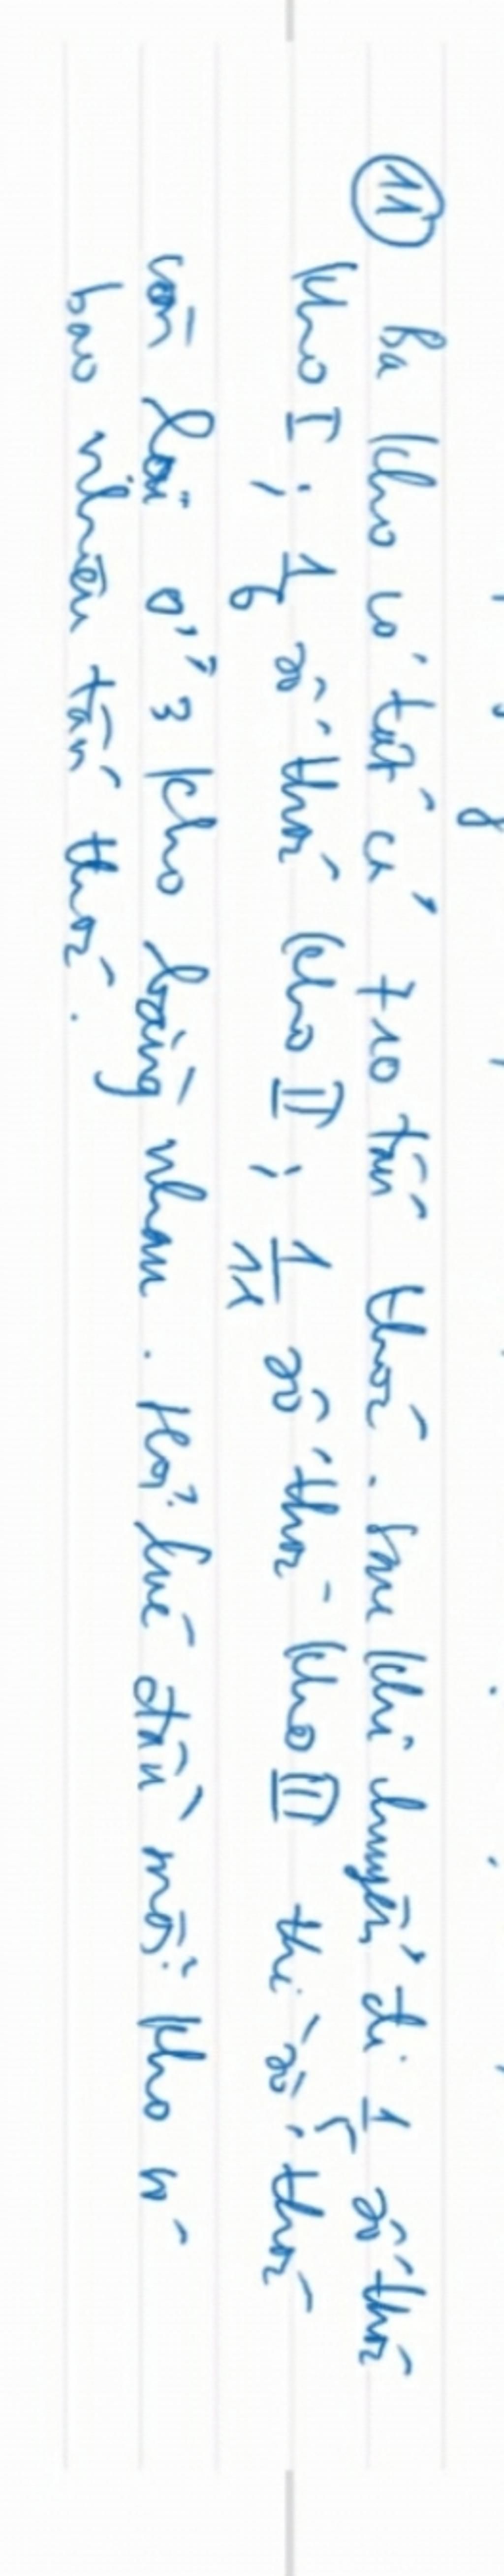 11 Ba kho có tất cả 710 tấn thóc. Sau khi chuyển đi 1/5 số thóc
kho I; 1/6 số thóc kho II; 1/11 số thóc kho III thì số thóc
còn lại ở 3 kho bằng nhau. Hỏi lúc đầu mỗi kho có
bao nhiêu tấn thóc.